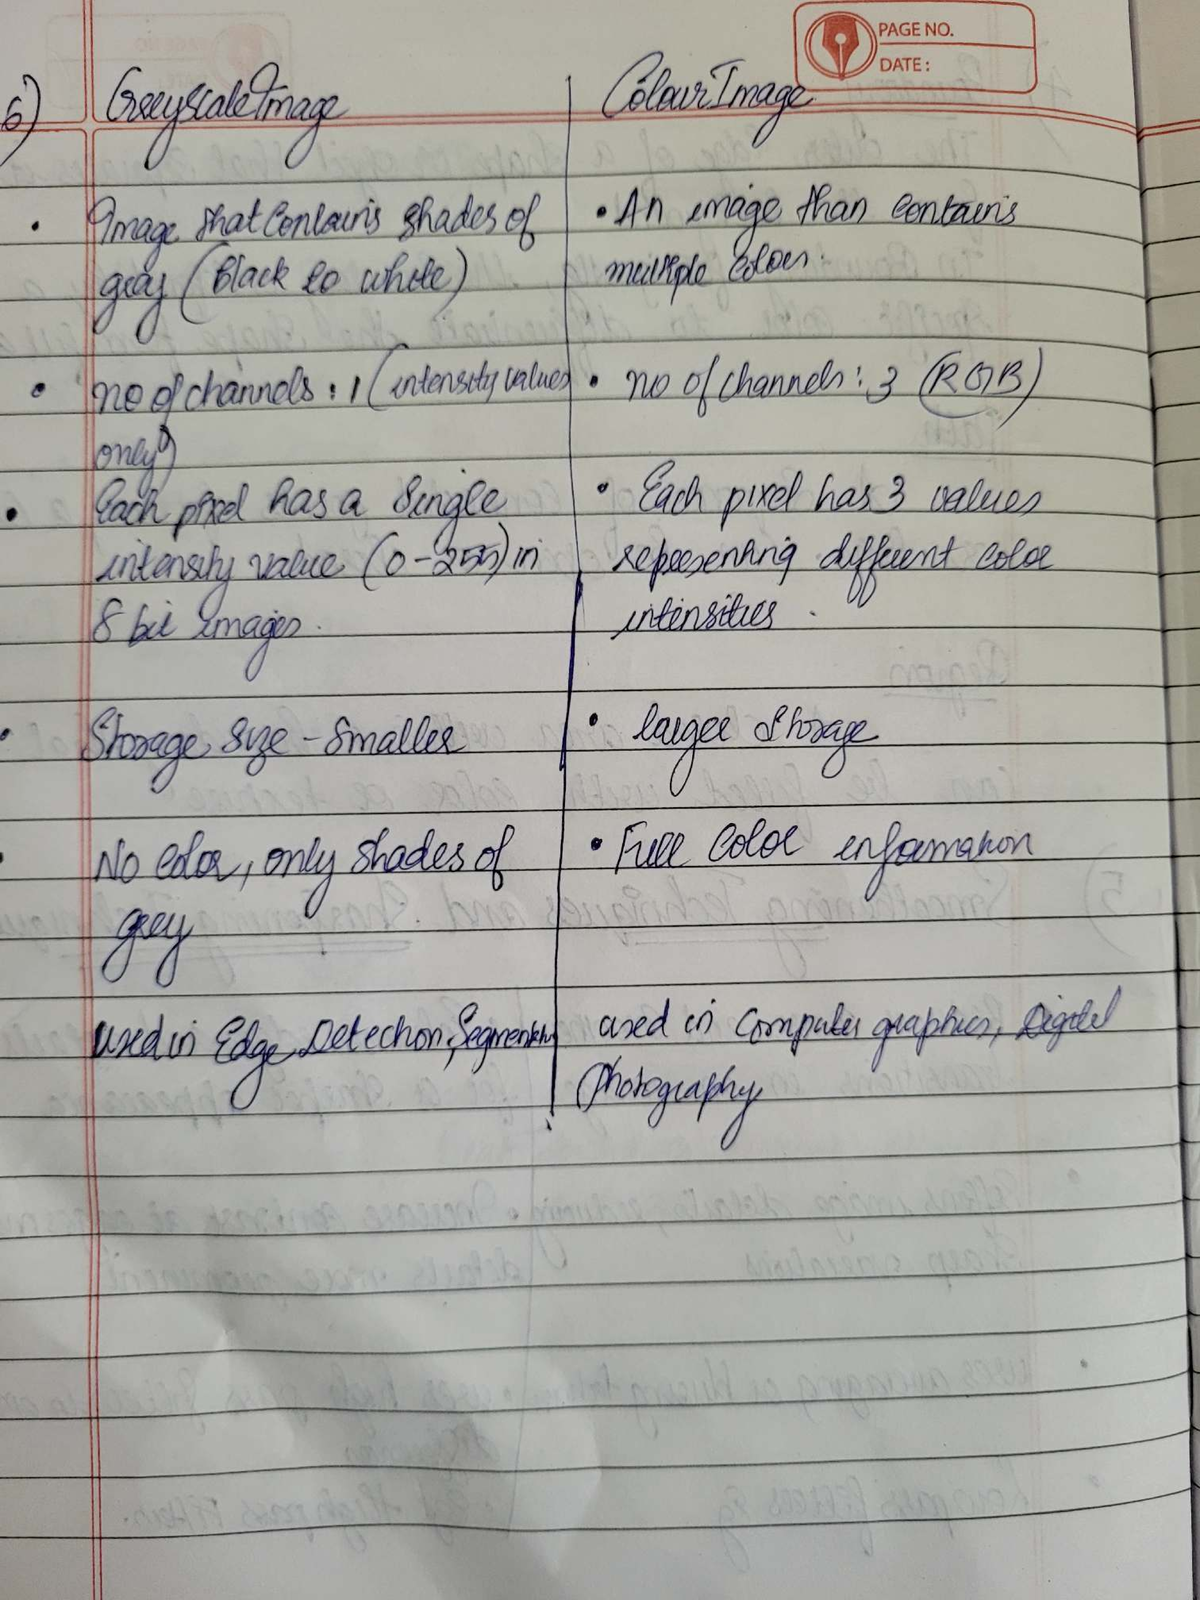 PAGE NO.
DATE:
6) Greyscale Image
Colour Image
• Image that contains shades of
gray (black to white)
• An image than contains
multiple colour.
• no of channels : 1 (intensity values
only)
• no of channels : 3 (RGB)
• Each pixel has a single
intensity value (0-255) in
8 bit images.
• Each pixel has 3 values
representing different color
intensities.
• Storage size - smaller
• larger storage
• No color, only shades of
grey
• Full color information
used in Edge Detection,
used in computer graphics, Digital
Photography